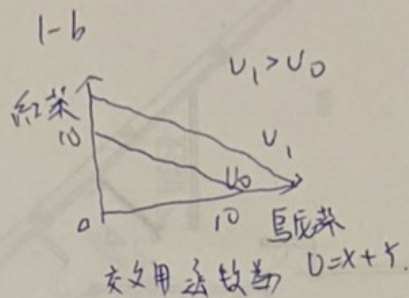 1-b
U₁ > U₀
紅茶
10
U₁
U₀
0
10
烏龍茶
效用函數為 U=x+y.